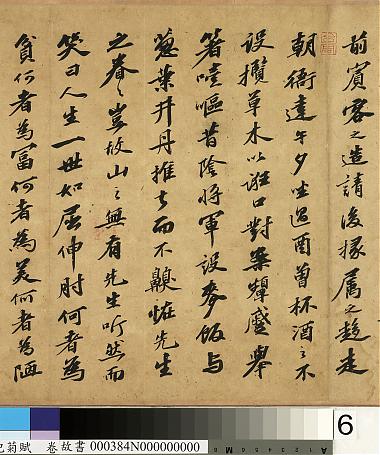 前賓客之造請後掾屬之趨走
朝衙達午夕坐過酉曾杯酒之不
設攬草木以誑口對案顰蹙舉
箸噎嘔昔陰將軍設麥飯与
葱葉井丹推去而不齅怪先生
之眷々豈故山之無有先生听然而
笑曰人生一世如屈伸肘何者為
貧何者為富何者為美何者為陋
杞菊賦 卷故書 000384N000000000
6